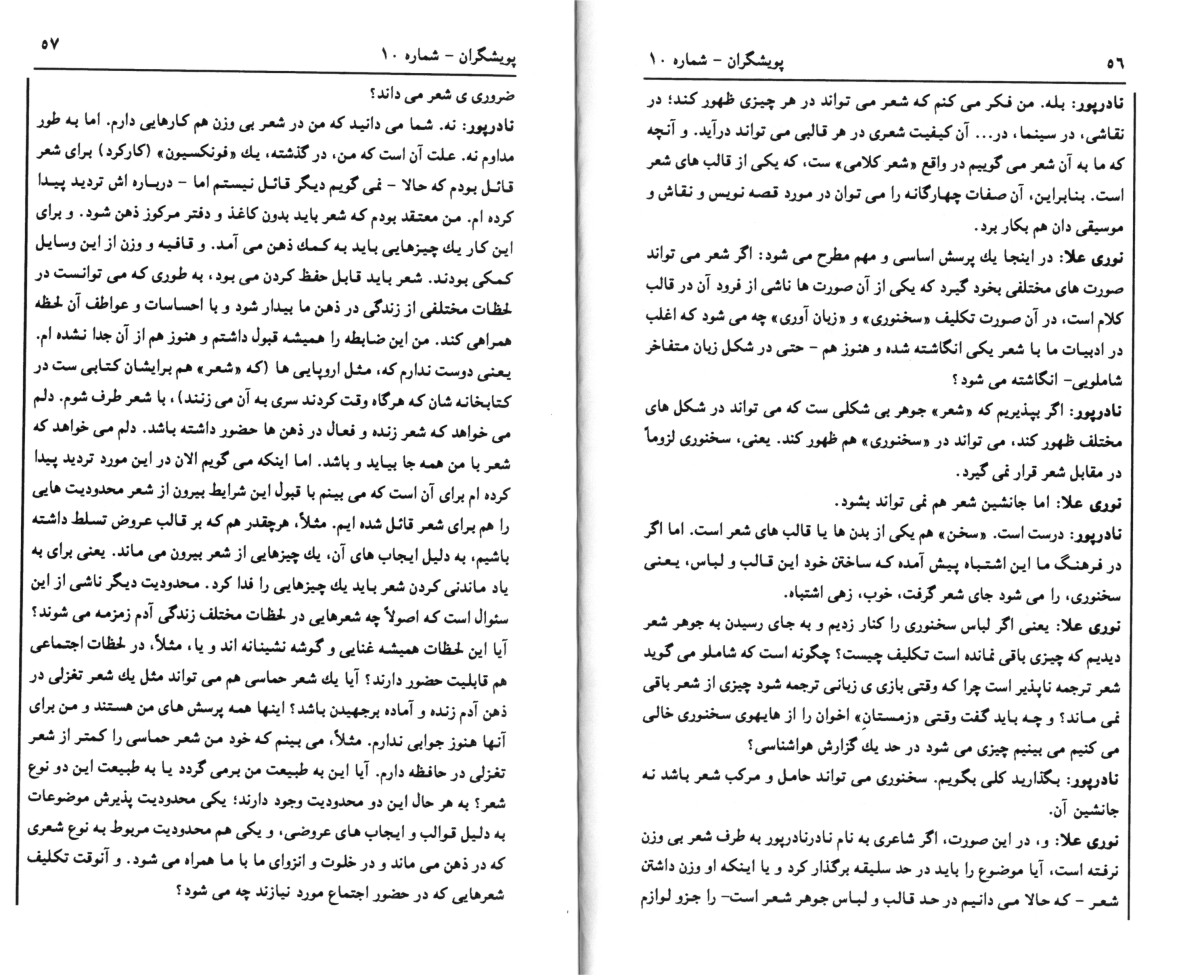 ۵۶ پویشگران – شماره ۱۰
نادرپور: بله. من فکر می کنم که شعر می تواند در هر چیزی ظهور کند؛ در
نقاشی، در سینما، در... آن کیفیت شعری در هر قالبی می تواند درآید. و آنچه
که ما به آن شعر می گوییم در واقع «شعر کلامی» ست، که یکی از قالب های شعر
است. بنابراین، آن صفات چهارگانه را می توان در مورد قصه نویس و نقاش و
موسیقی دان هم بکار برد.
نوری علا: در اینجا یك پرسش اساسی و مهم مطرح می شود: اگر شعر می تواند
صورت های مختلفی بخود گیرد که یکی از آن صورت ها ناشی از فرود آن در قالب
کلام است، در آن صورت تکلیف «سخنوری» و «زبان آوری» چه می شود که اغلب
در ادبیات ما با شعر یکی انگاشته شده و هنوز هم – حتی در شکل زبان متفاخر
شاملویی– انگاشته می شود؟
نادرپور: اگر بپذیریم که «شعر» جوهر بی شکلی ست که می تواند در شکل های
مختلف ظهور کند، می تواند در «سخنوری» هم ظهور کند. یعنی، سخنوری لزوماً
در مقابل شعر قرار نمی گیرد.
نوری علا: اما جانشین شعر هم نمی تواند بشود.
نادرپور: درست است. «سخن» هم یکی از بدن ها یا قالب های شعر است. اما اگر
در فرهنگ ما این اشتباه پیش آمده که ساختن خود این قالب و لباس، یعنی
سخنوری، را می شود جای شعر گرفت، خوب، زهی اشتباه.
نوری علا: یعنی اگر لباس سخنوری را کنار زدیم و به جای رسیدن به جوهر شعر
دیدیم که چیزی باقی نمانده است تکلیف چیست؟ چگونه است که شاملو می گوید
شعر ترجمه ناپذیر است چرا که وقتی بازی ی زبانی ترجمه شود چیزی از شعر باقی
نمی ماند؟ و چه باید گفت وقتی «زمستانِ» اخوان را از هایهوی سخنوری خالی
می کنیم می بینیم چیزی می شود در حد یك گزارش هواشناسی؟
نادرپور: بگذارید کلی بگویم. سخنوری می تواند حامل و مرکب شعر باشد نه
جانشین آن.
نوری علا: و، در این صورت، اگر شاعری به نام نادرنادرپور به طرف شعر بی وزن
نرفته است، آیا موضوع را باید در حد سلیقه برگذار کرد و یا اینکه او وزن داشتن
شعر – که حالا می دانیم در حد قالب و لباس جوهر شعر است– را جزو لوازم
پویشگران – شماره ۱۰ ۵۷
ضروری ی شعر می داند؟
نادرپور: نه. شما می دانید که من در شعر بی وزن هم کارهایی دارم. اما به طور
مداوم نه. علت آن است که من، در گذشته، یك «فونکسیون» (کارکرد) برای شعر
قائل بودم که حالا – نمی گویم دیگر قائل نیستم اما – درباره اش تردید پیدا
کرده ام. من معتقد بودم که شعر باید بدون کاغذ و دفتر مرکوز ذهن شود. و برای
این کار یك چیزهایی باید به کمك ذهن می آمد. و قافیه و وزن از این وسایل
کمکی بودند. شعر باید قابل حفظ کردن می بود، به طوری که می توانست در
لحظات مختلفی از زندگی در ذهن ما بیدار شود و با احساسات و عواطف آن لحظه
همراهی کند. من این ضابطه را همیشه قبول داشتم و هنوز هم از آن جدا نشده ام.
یعنی دوست ندارم که، مثل اروپایی ها (که «شعر» هم برایشان کتابی ست در
کتابخانه شان که هرگاه وقت کردند سری به آن می زنند)، با شعر طرف شوم. دلم
می خواهد که شعر زنده و فعال در ذهن ها حضور داشته باشد. دلم می خواهد که
شعر با من همه جا بیاید و باشد. اما اینکه می گویم الان در این مورد تردید پیدا
کرده ام برای آن است که می بینم با قبول این شرایط بیرون از شعر محدودیت هایی
را هم برای شعر قائل شده ایم. مثلاً، هرچقدر هم که بر قالب عروض تسلط داشته
باشیم، به دلیل ایجاب های آن، یك چیزهایی از شعر بیرون می ماند. یعنی برای به
یاد ماندنی کردن شعر باید یك چیزهایی را فدا کرد. محدودیت دیگر ناشی از این
سئوال است که اصولاً چه شعرهایی در لحظات مختلف زندگی آدم زمزمه می شوند؟
آیا این لحظات همیشه غنایی و گوشه نشینانه اند و یا، مثلاً، در لحظات اجتماعی
هم قابلیت حضور دارند؟ آیا یك شعر حماسی هم می تواند مثل یك شعر تغزلی در
ذهن آدم زنده و آماده برجهیدن باشد؟ اینها همه پرسش های من هستند و من برای
آنها هنوز جوابی ندارم. مثلاً، می بینم که خود من شعر حماسی را کمتر از شعر
تغزلی در حافظه دارم. آیا این به طبیعت من برمی گردد یا به طبیعت این دو نوع
شعر؟ به هر حال این دو محدودیت وجود دارند؛ یکی محدودیت پذیرش موضوعات
به دلیل قوالب و ایجاب های عروضی، و یکی هم محدودیت مربوط به نوع شعری
که در ذهن می ماند و در خلوت و انزوای ما با ما همراه می شود. و آنوقت تکلیف
شعرهایی که در حضور اجتماع مورد نیازند چه می شود؟